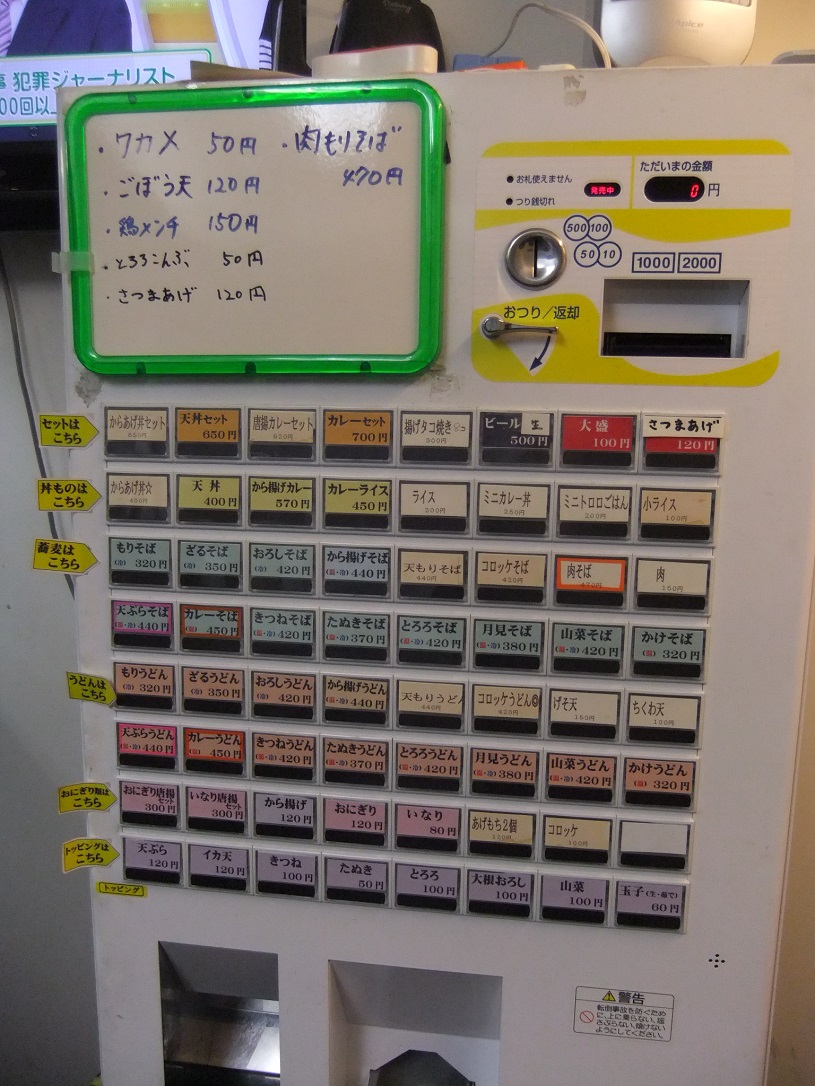 犯罪ジャーナリスト
00回以
Apice
・ワカメ 50円
・ごぼう天 120円
・鶏メンチ 150円
・とろろこんぶ 50円
・さつまあげ 120円
・肉もりそば
470円
お札使えません
つり銭切れ
発売中
ただいまの金額
0円
500 100
50 10
1000 2000
おつり/返却
セットは
こちら
からあげ丼セット
天丼セット
650円
唐揚カレーセット
カレーセット
700円
揚げタコ焼き
300円
ビール 生
500円
大盛
100円
さつまあげ
120円
丼ものは
こちら
からあげ丼☆
天丼
400円
から揚げカレー
570円
カレーライス
450円
ライス
200円
ミニカレー丼
250円
ミニトロロごはん
小ライス
蕎麦は
こちら
もりそば
(冷) 320円
ざるそば
(冷) 350円
おろしそば
(冷) 420円
から揚げそば
(温・冷) 440円
天もりそば
440円
コロッケそば
肉そば
肉
天ぷらそば
(温・冷) 440円
カレーそば
(温) 450円
きつねそば
(温・冷) 420円
たぬきそば
(温・冷) 370円
とろろそば
(温・冷) 420円
月見そば
(温・冷) 380円
山菜そば
(温・冷) 420円
かけそば
(温) 320円
うどんは
こちら
もりうどん
(冷) 320円
ざるうどん
(冷) 350円
おろしうどん
(冷) 420円
から揚げうどん
(温・冷) 440円
天もりうどん
440円
コロッケうどん
げそ天
150円
ちくわ天
100円
天ぷらうどん
(温・冷) 440円
カレーうどん
(温) 450円
きつねうどん
(温・冷) 420円
たぬきうどん
(温・冷) 370円
とろろうどん
(温・冷) 420円
月見うどん
(温・冷) 380円
山菜うどん
(温・冷) 420円
かけうどん
(温) 320円
おにぎり類は
こちら
おにぎり唐揚
セット
300円
いなり唐揚
セット
300円
から揚げ
120円
おにぎり
120円
いなり
80円
あげもち2個
コロッケ
トッピングは
こちら
トッピング
天ぷら
120円
イカ天
120円
きつね
100円
たぬき
50円
とろろ
100円
大根おろし
100円
山菜
100円
玉子(生・茹で)
60円
警告
転倒事故を防ぐため
に、上に乗らない、揺
さぶらない、傾けない
ようにしてください。